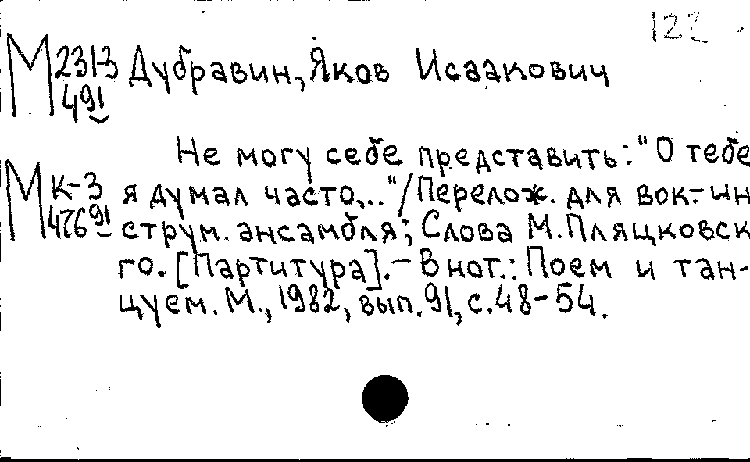 122
М 231-3 Дубравин, Яков Исаакович
491
Не могу себе представить: "О тебе
М К-3 я думал часто,.." / Перелож. для вок.-ин
476 91 струм. ансамбля; Слова М. Пляцковск
го. [Партитура]. - В нот.: Поем и тан-
цуем. М., 1982, вып. 91, с. 48-54.